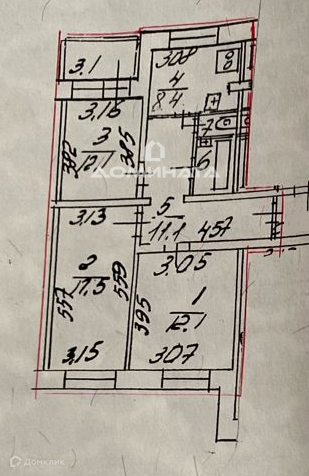 3.1
308
4
8.4
3.16
3
12.1
392
385
7
6
ДОМИНАНТА
3.13
5
11.1
457
2
17.5
557
559
3.15
3.05
1
12.1
395
307
Домклик